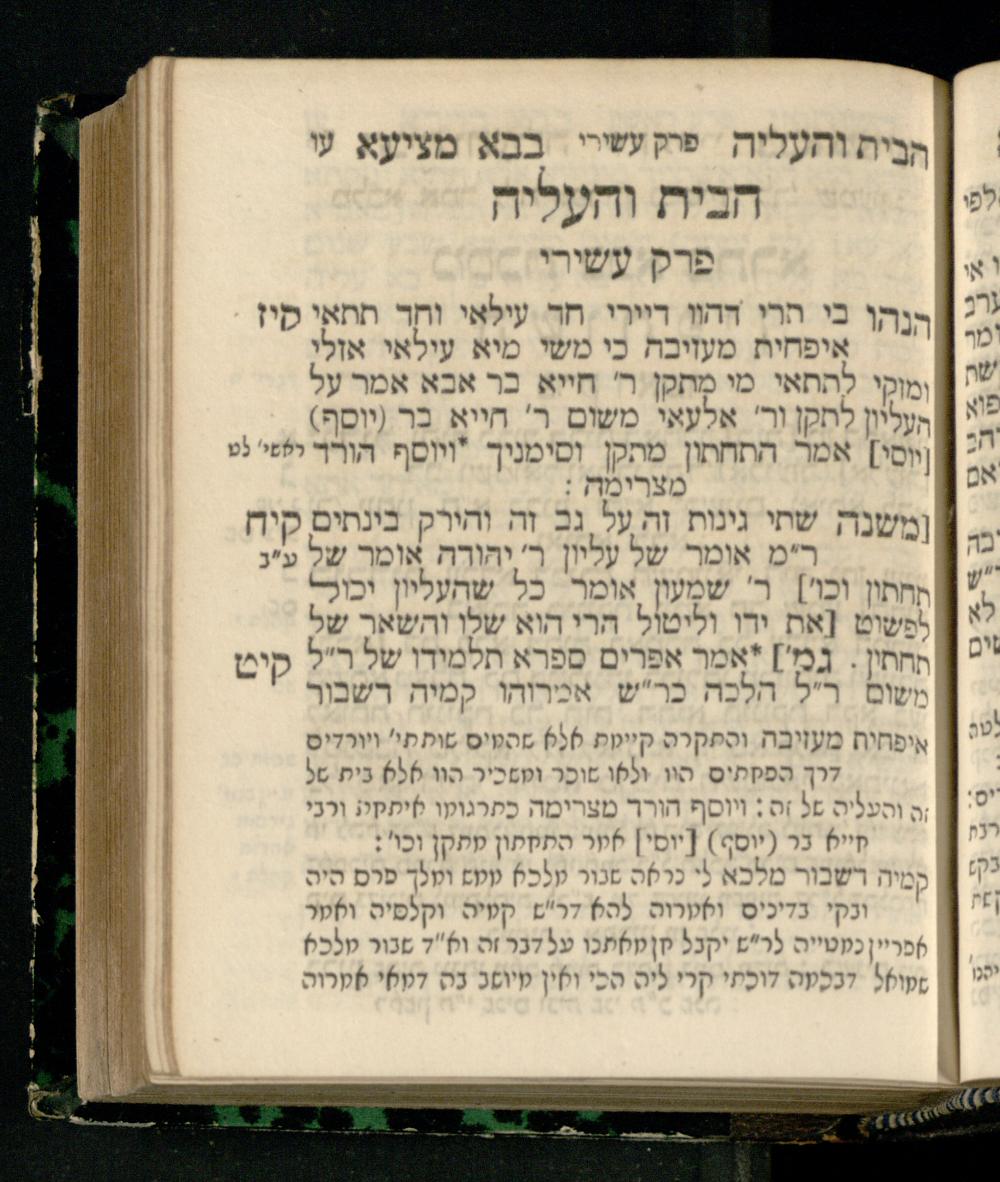 הבית והעליה פרק עשירי בבא מציעא עו
הבית והעליה
פרק עשירי
הנהו בי תרי דהוו דיירי חד עילאי וחד תתאי קיז
איפחית מעזיבה כי משי מיא עילאי אזלי
ומזקי לתתאי מי מתקן ר' חייא בר אבא אמר על
העליון לתקן ור' אלעאי משום ר' חייא בר (יוסף)
[יוסי] אמר התחתון מתקן וסימניך *ויוסף הורד ראשי' לט
מצרימה :
[משנה שתי גינות זה על גב זה והירק בינתים קיח
ר"מ אומר של עליון ר' יהודה אומר של ע"ב
תחתון וכו'] ר' שמעון אומר כל שהעליון יכול
לפשוט [את ידו וליטול הרי הוא שלו והשאר של
תחתון. גמ'] *אמר אפרים ספרא תלמידו של ר"ל קיט
משום ר"ל הלכה כר"ש אמרוהו קמיה דשבור
איפחית מעזיבה והתקרה קיימת אלא שהמים שותתי' ויורדים
דרך הפחתים הוו ולאו שוכר ומשכיר הוו אלא בית של
זה והעליה של זה : ויוסף הורד מצרימה כתרגומו איתחת ורבי
חייא בר (יוסף) [יוסי] אמר התחתון מתקן וכו' :
קמיה דשבור מלכא לי נראה שבור מלכא ממש ומלך פרס היה
ובקי בדינים ואמרוה להא דר"ש קמיה וקלסיה ואמר
אפריין נמטייה לר"ש יקבל חן מאתנו על דבר זה וא"ד שבור מלכא
שמואל דבכמה דוכתי קרי ליה הכי ואין מיושב בה דמאי אמרוה